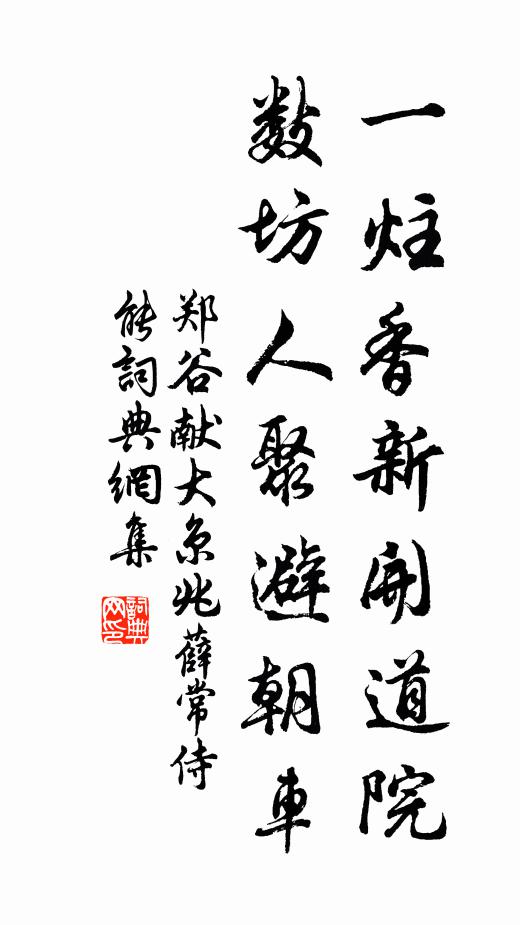 一炷香新開道院
数坊人聚避朝車
郑谷献大京兆薛常侍
能詞典網集
詞典网印